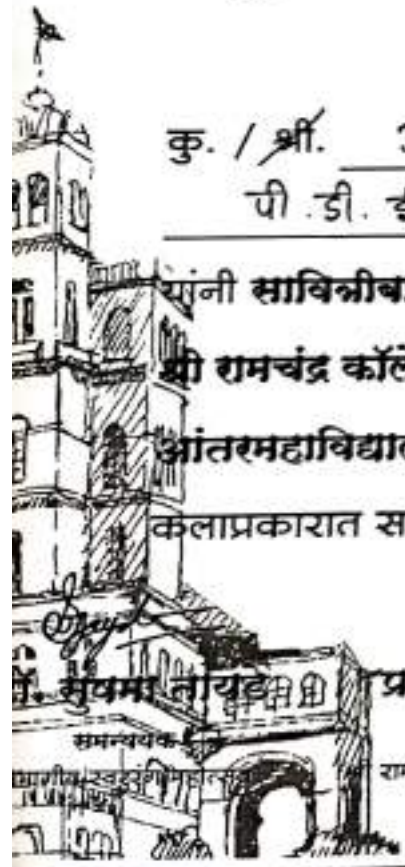 कु. / श्री.
पी .डी. ई
यांनी सावित्रीब
श्री रामचंद्र कॉले
आंतरमहाविद्याल
कलाप्रकारात स
डॉ. सुषमा नायडे प्र
समन्वयक
रा